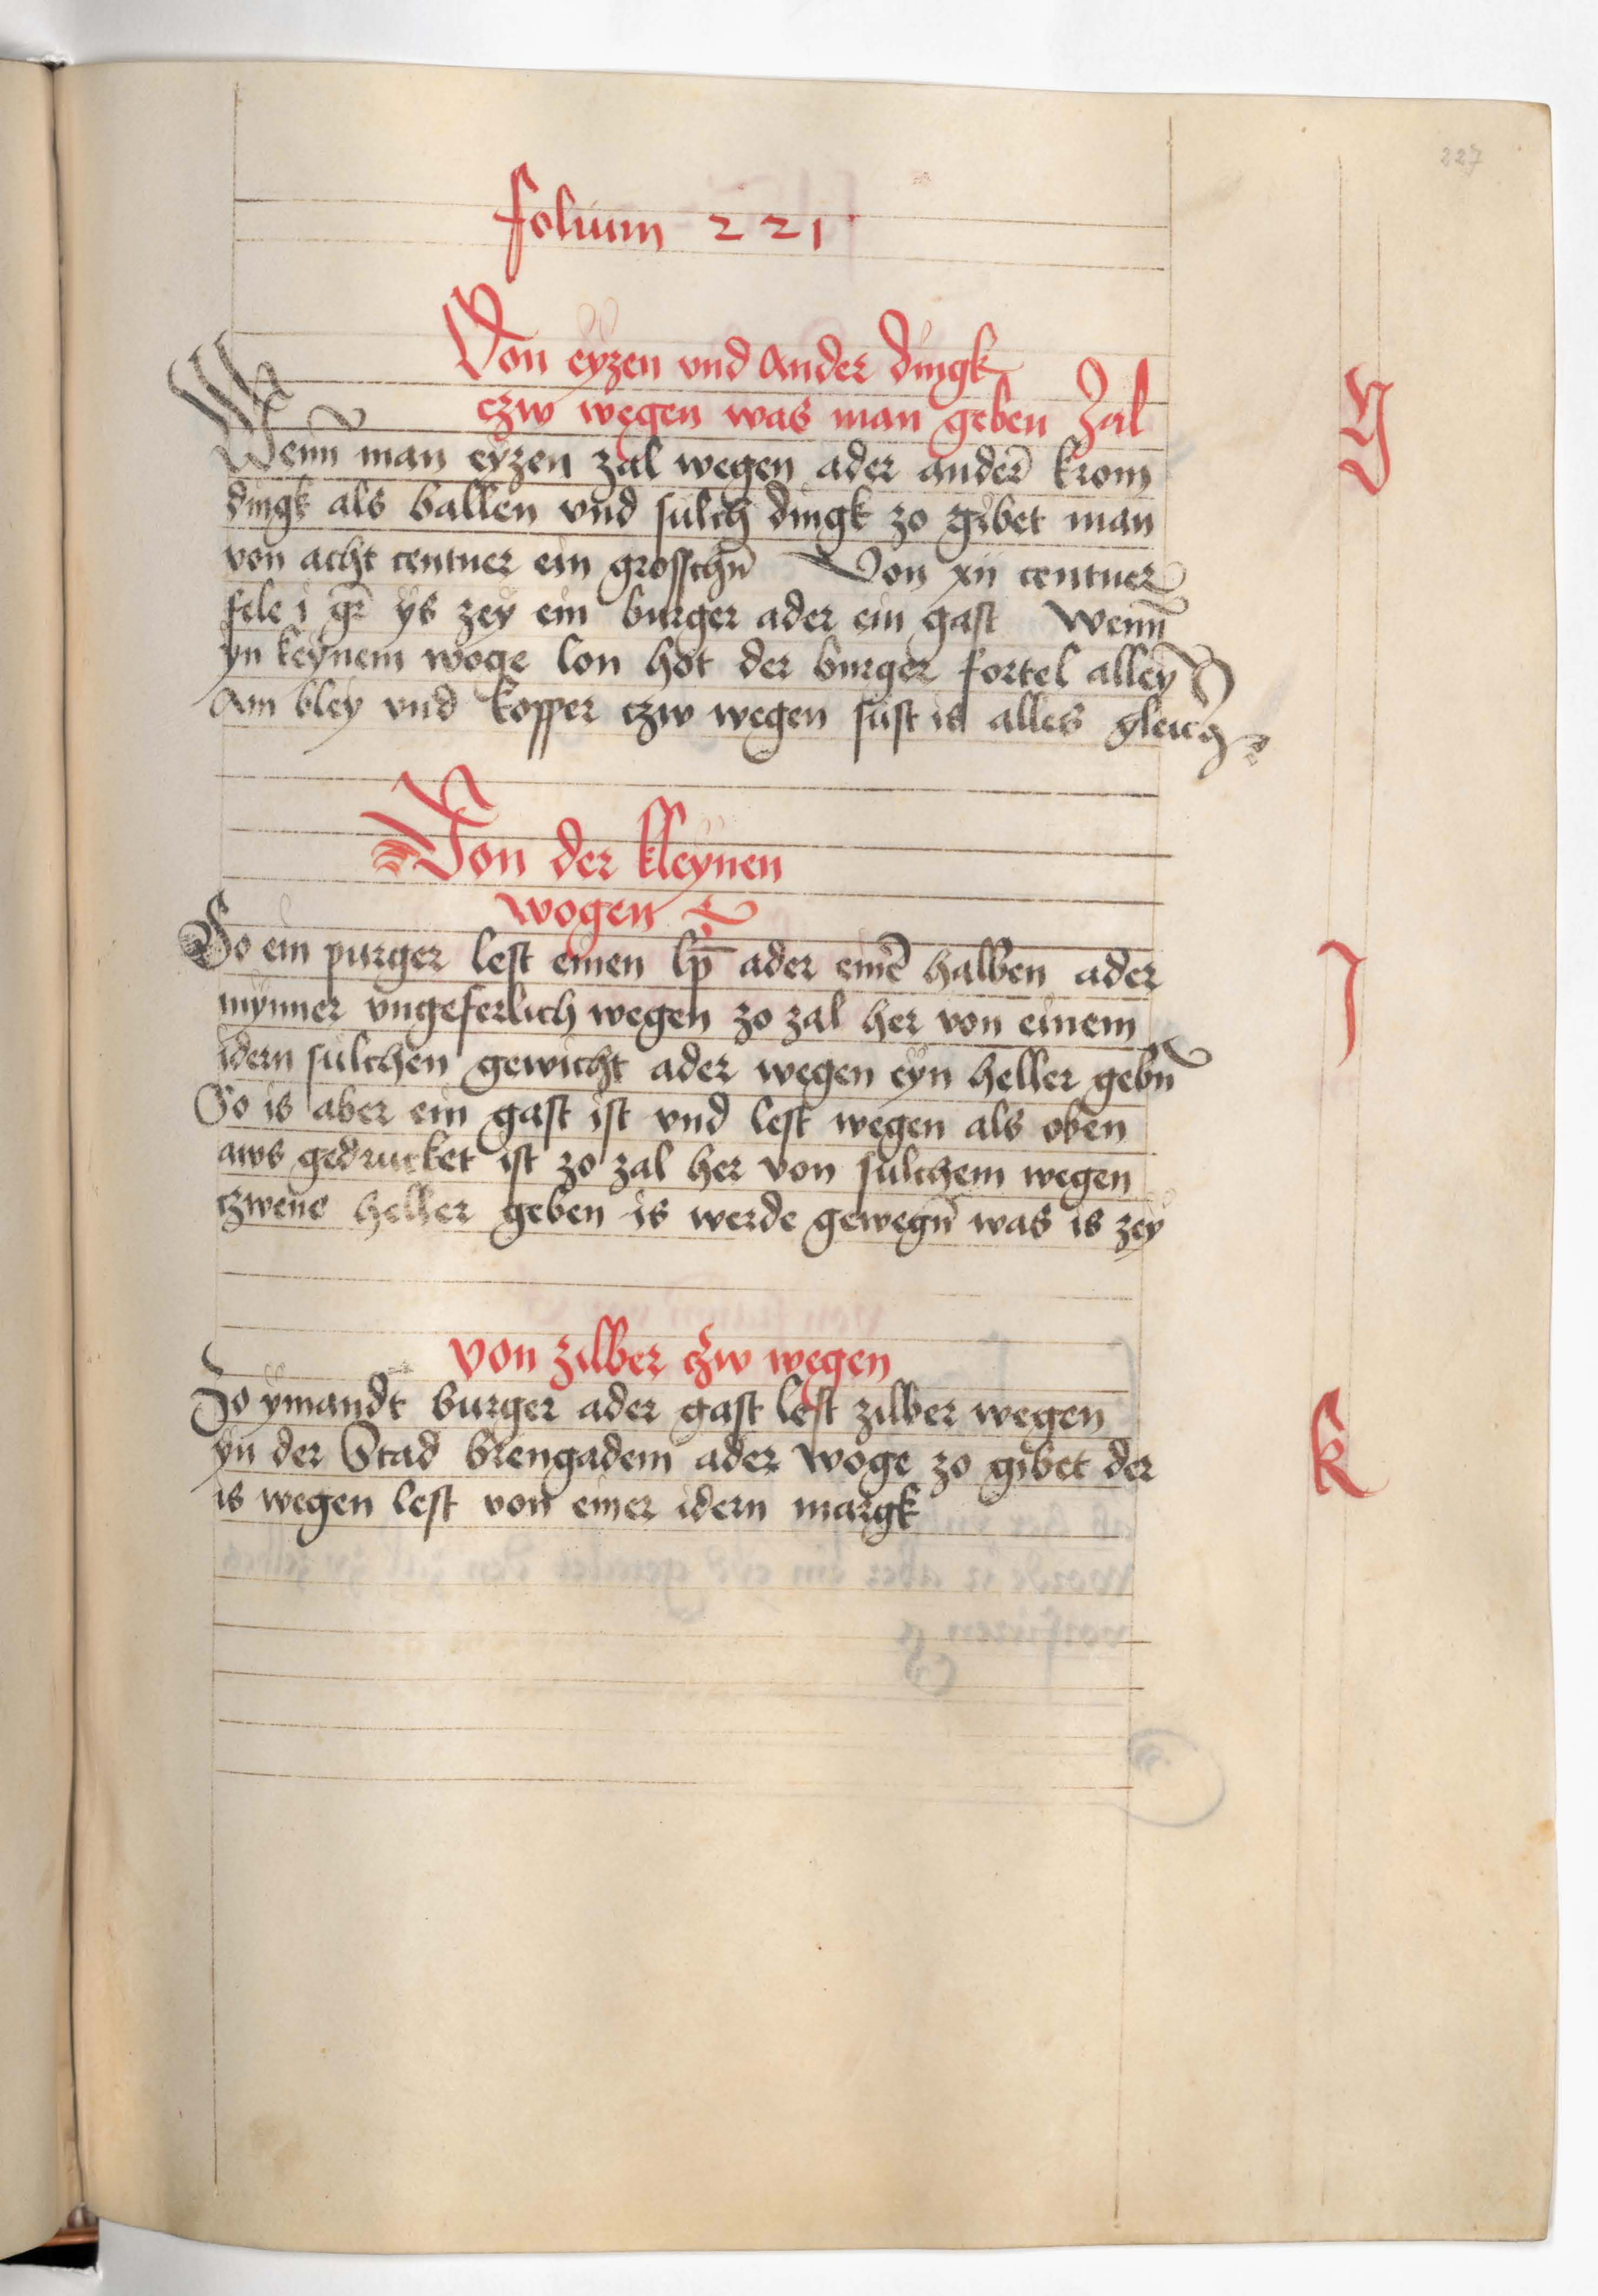 227
folium 221
Von eyzen vnd ander dingk
czw wegen was man geben zal
Wenn man eyzen zal wegen ader anderē krom
dingk als ballen vnd sulch dingk zo gibet man
von acht centner ein grosschn̄ Von xii centner
fele i gr̄ ys zey ein burger ader ein gast wenn̄
yn keynem woge lon hot der burger fortel alley
Am bley vnd kopper czw wegen sust is alles gleich
Von der kleynen
wogen
So ein purger lest einen lp̄ ader einē halben ader
mynner vngeferlich wegen zo zal her von einem
idern sulchen gewicht ader wegen eyn heller gebn̄
So is aber ein gast ist vnd lest wegen als oben
aws gedrucket ist zo zal her von sulchem wegen
czwene heller geben is werde gewegn̄ was is zey
von zilber czw wegen
Zo ymandt burger ader gast lest zilber wegen
yn der Stad brengadem ader woge zo gibet der
is wegen lest von einer idern margk
J
k